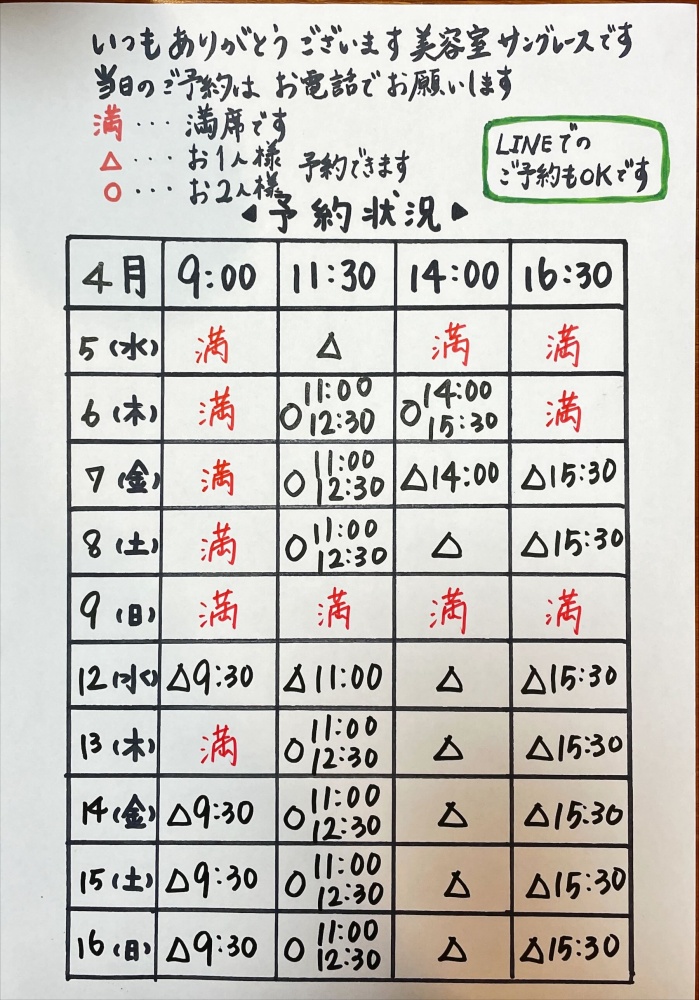 いつもありがとうございます美容室サングレースです
当日のご予約はお電話でお願いします
満・・・満席です
△・・・お1人様 予約できます
○・・・お2人様
LINEでの
ご予約もOKです
◀予約状況▶
4月 9:00 11:30 14:00 16:30
5(水) 満 △ 満 満
6(木) 満 ○11:00 12:30 ○14:00 15:30 満
7(金) 満 ○11:00 12:30 △14:00 △15:30
8(土) 満 ○11:00 12:30 △ △15:30
9(日) 満 満 満 満
12(水) △9:30 △11:00 △ △15:30
13(木) 満 ○11:00 12:30 △ △15:30
14(金) △9:30 ○11:00 12:30 △ △15:30
15(土) △9:30 ○11:00 12:30 △ △15:30
16(日) △9:30 ○11:00 12:30 △ △15:30